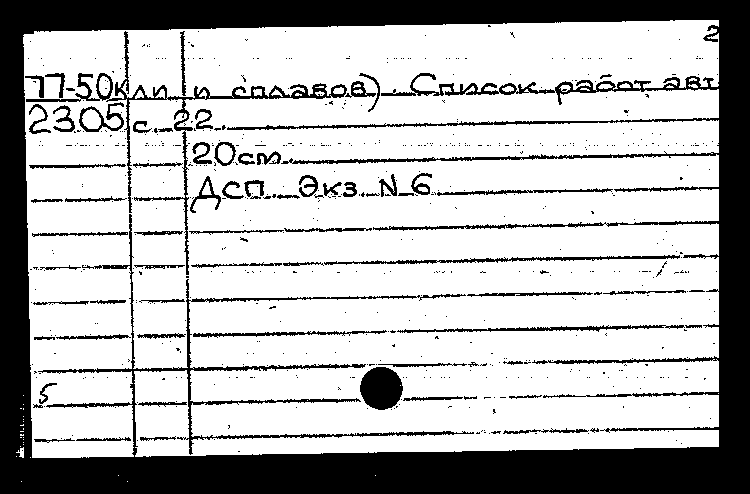 2
77-50к ли и сплавов). Список работ авт
2305 с. 22.
20 см.
ДСП Экз N 6
5